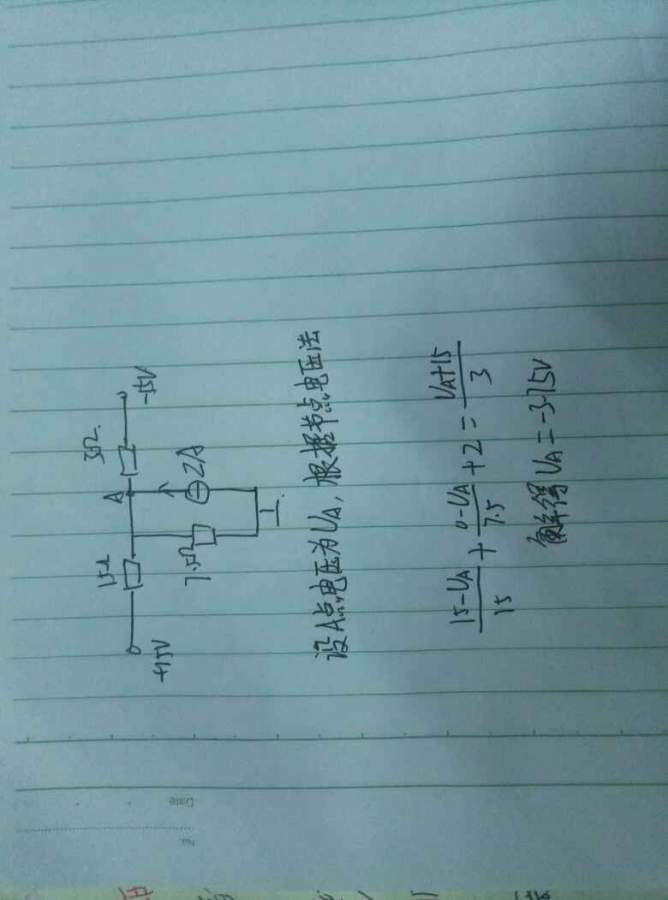 15Ω
A
3Ω
+15V
-15V
7.5Ω
2A
设A点电压为UA, 根据节点电压法
15-UA/15 + 0-UA/7.5 + 2 = UA+15/3
解得 UA = -3.75V
No.
Date